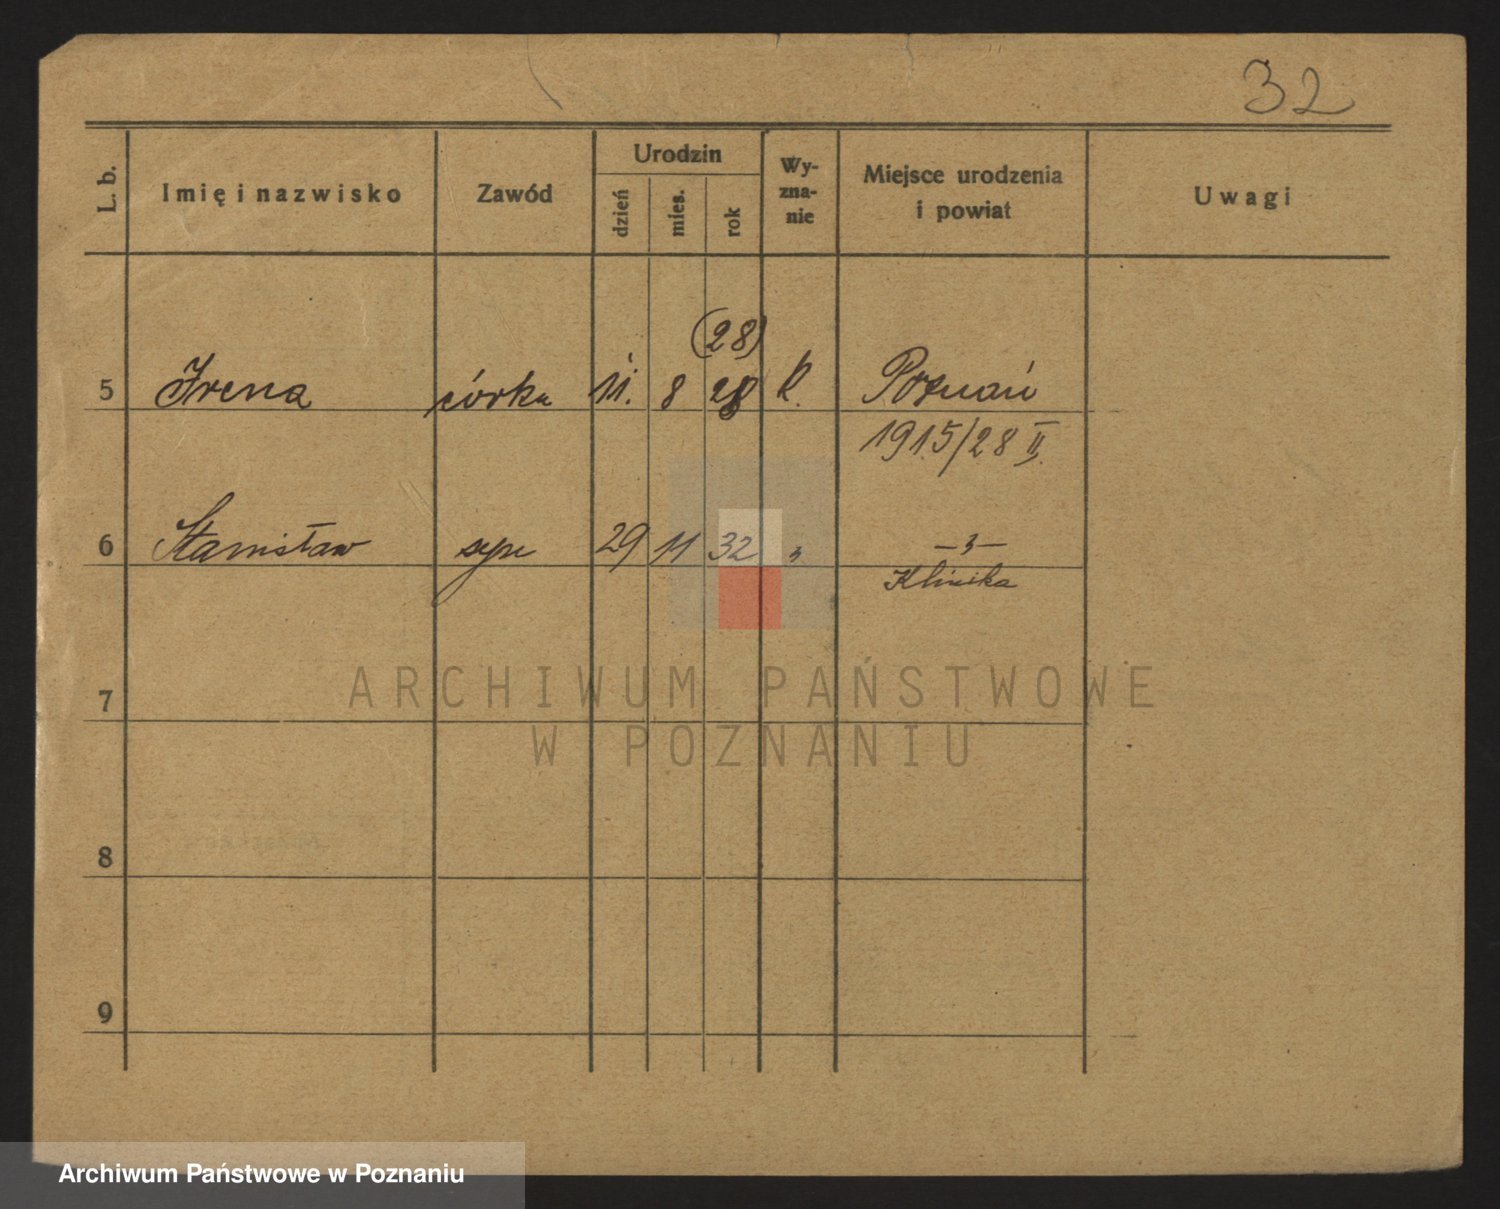 32
L. b. Imię i nazwisko Zawód Urodzin dzień mies. rok Wy-zna-nie Miejsce urodzenia i powiat Uwagi
(28)
5 Irena córka 11. 8 28 k. Poznań
1915/28 II.
6 Stanisław syn 29 11 32 " — " —
Klinika
7
8
9
ARCHIWUM PAŃSTWOWE
W POZNANIU
Archiwum Państwowe w Poznaniu